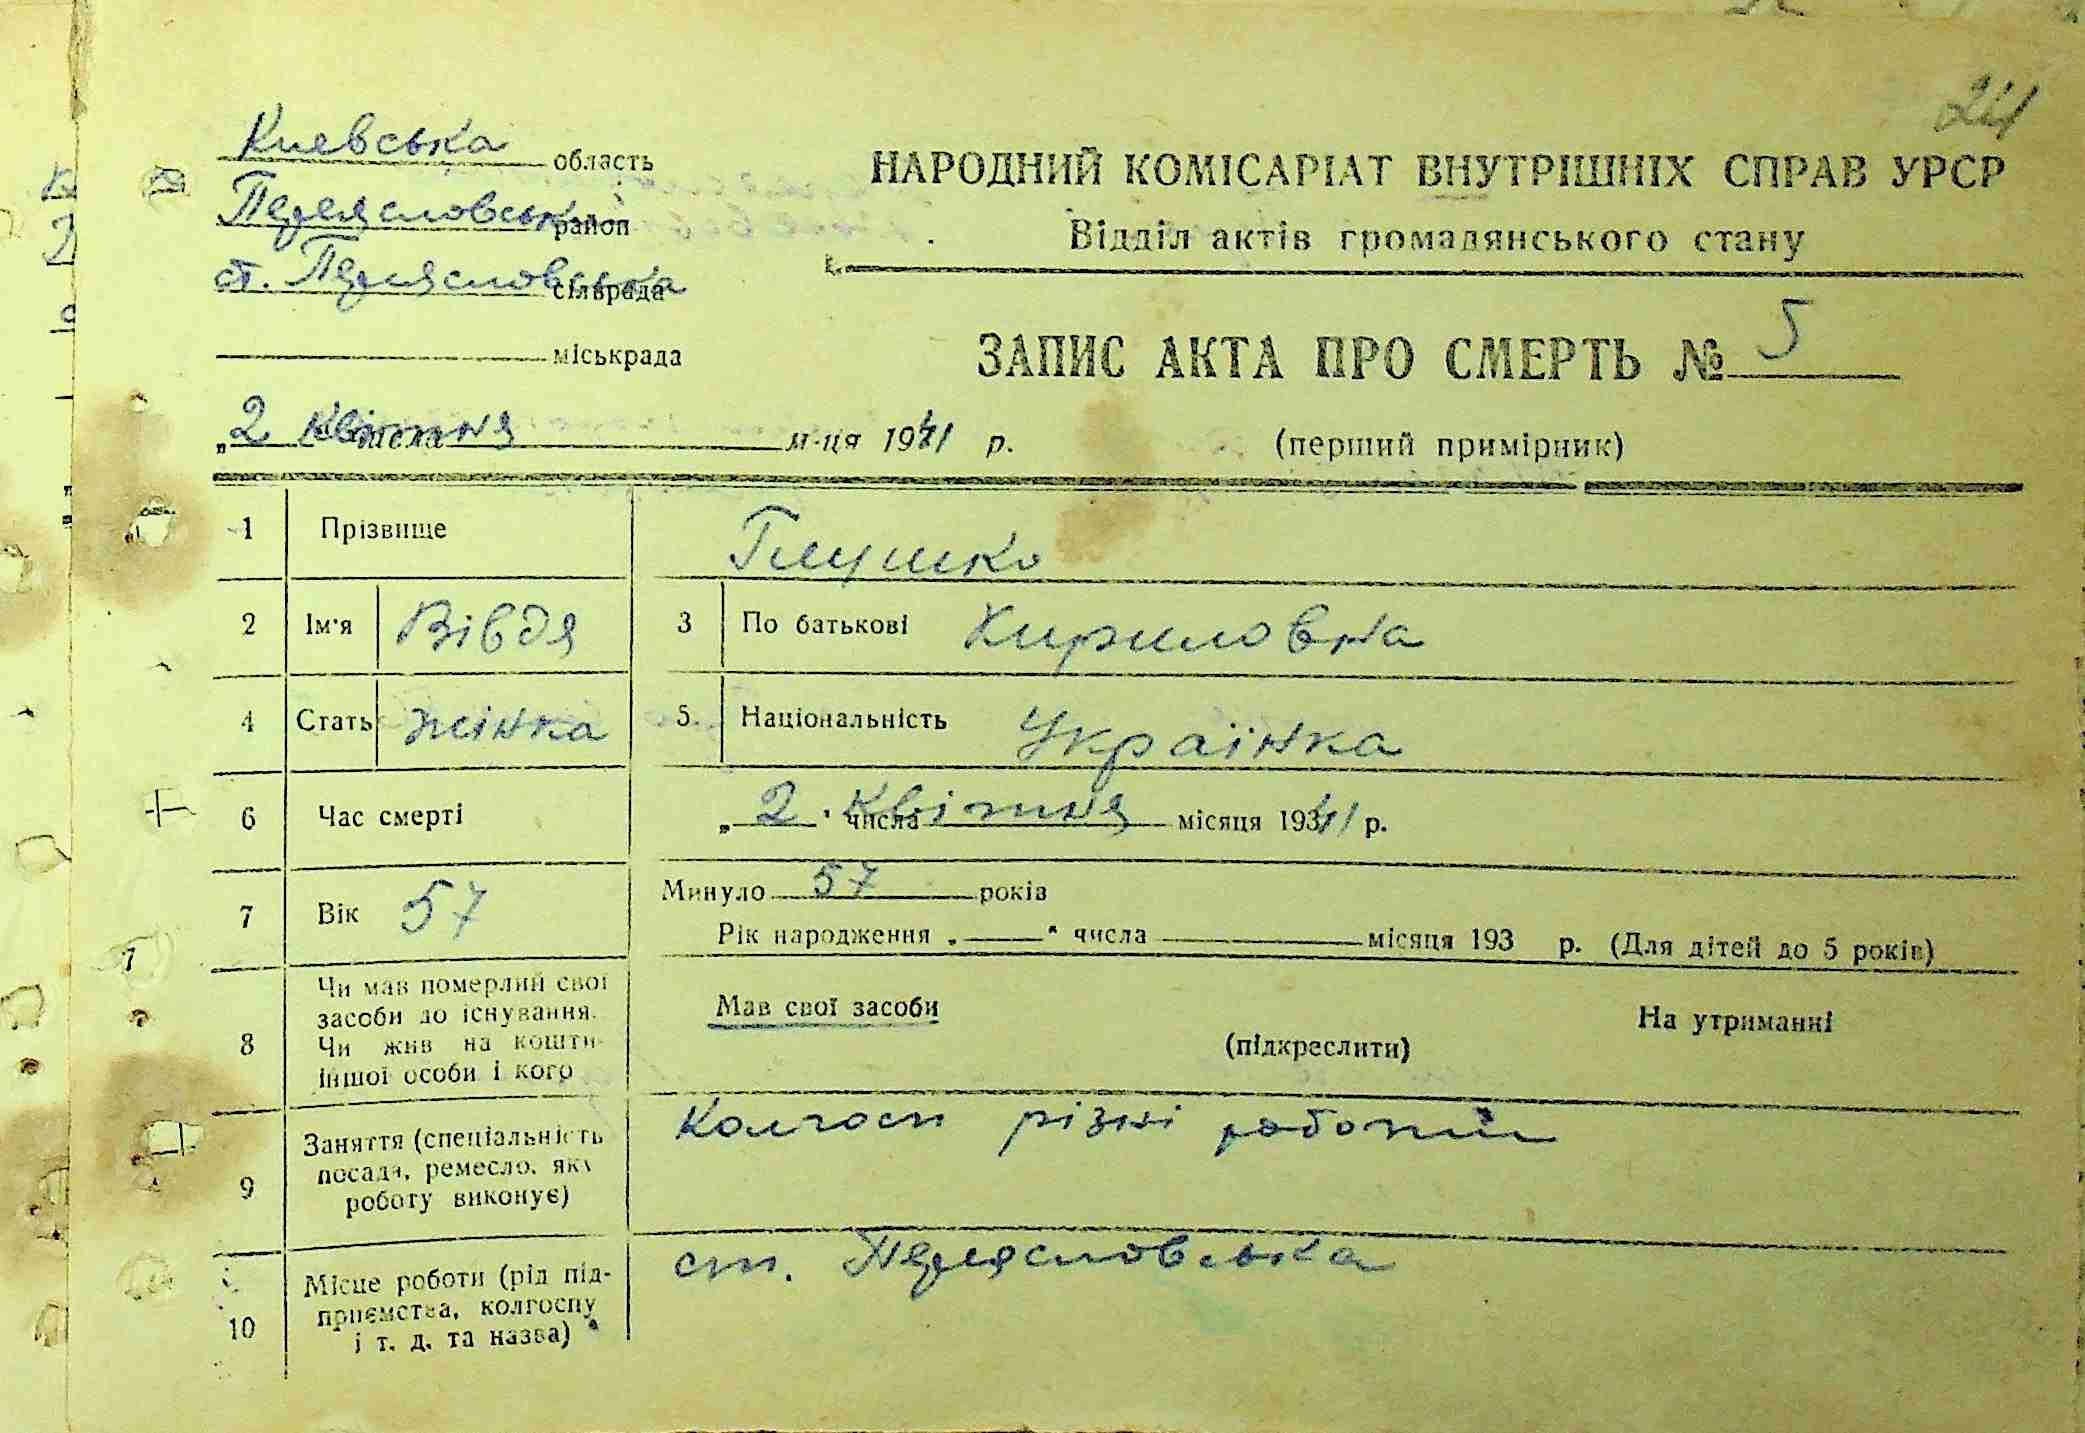 24
Киевська область
Переясловськ район
ст. Переясловська сільрада
міськрада
НАРОДНИЙ КОМІСАРІАТ ВНУТРІШНІХ СПРАВ УРСР
Відділ актів громадянського стану
ЗАПИС АКТА ПРО СМЕРТЬ № 5
(перший примірник)
„2 числа квітня м-ця 1941 р.
1 Прізвище Глушко
2 Ім'я Вівдя 3 По батькові Кириловна
4 Стать жінка 5. Національність Українка
6 Час смерті „2" числа квітня місяця 1941 р.
7 Вік 57 Минуло 57 років
Рік народження „ " числа місяця 193 р. (Для дітей до 5 років)
8 Чи мав померлий свої
засоби до існування.
Чи жив на кошти
іншої особи і кого
Мав свої засоби (підкреслити) На утриманні
9 Заняття (спеціальність
посада, ремесло, яку
роботу виконує)
Колгосп різні роботи
10 Місце роботи (рід під-
приємства, колгоспу
і т. д. та назва)
ст. Переясловська